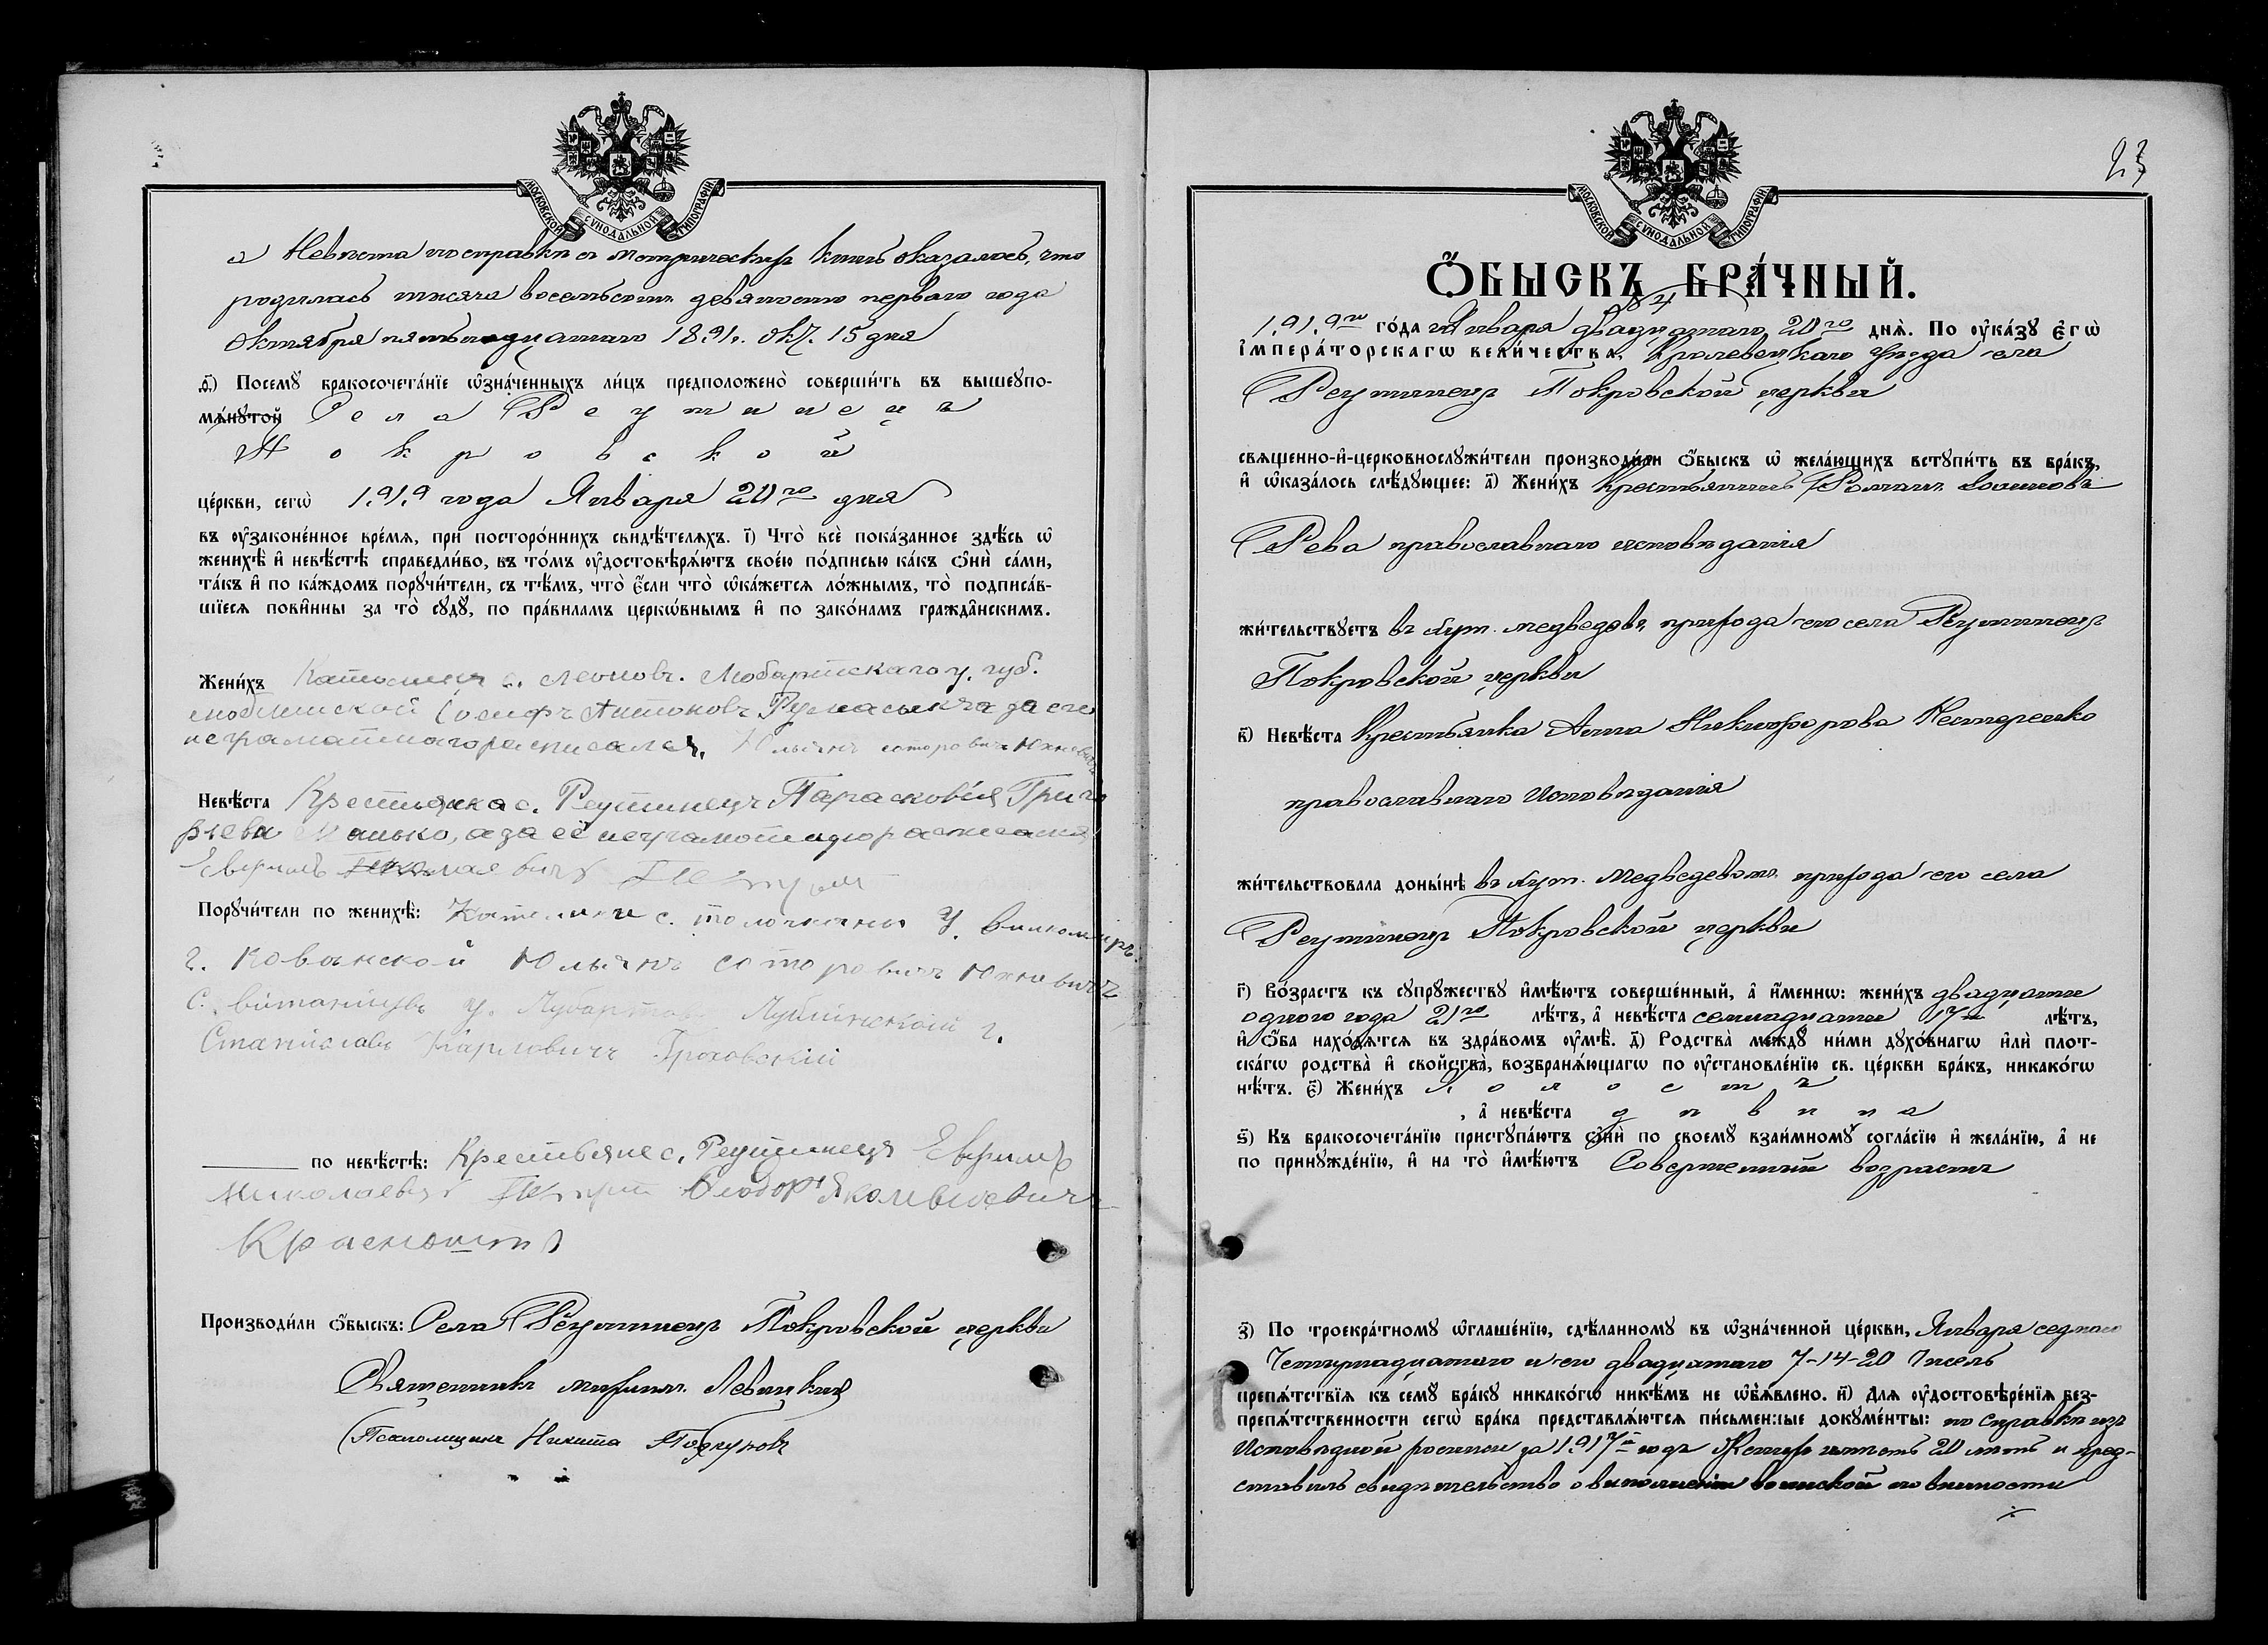 МОСКОВСКОЙ СѴНОДАЛЬНОЙ ТИПОГРАФІИ
а Невѣста по справкѣ съ метрическихъ книгъ оказалось, что
родилась тысяча восемьсотъ девяносто перваго года
Октября пятьнадцатаго 1891 г. Окт. 15 дня
ѳ҃) Посемꙋ бракосочета́нїе ѡ҆зна́ченныхъ ли́цъ предположено̀ соверши́ть въ вышеꙋпо-
мѧ́нꙋтой Села Реутинецъ
Покровской
це́ркви, сегѡ̀ 1919 года Января 20го дня
въ ᲂу҆законе́нное вре́мѧ, при посторо́ннихъ свидѣ́телѧхъ. і҃) Что̀ всѐ пока́занное здѣ́сь ѡ҆
женихѣ̀ и҆ невѣ́стѣ справедли́во, въ то́мъ ᲂу҆достовѣрѧ́ютъ свое́ю по́дписью ка́къ ѻ҆нѝ са́ми,
та́къ и҆ по ка́ждомъ порꙋчи́тели, съ тѣ́мъ, что̀ є҆́сли что̀ ѡ҆ка́жетсѧ ло́жнымъ, то̀ подписа́в-
шїесѧ пови́нны за то̀ сꙋдꙋ̀, по пра́виламъ церкѡ́внымъ и҆ по зако́намъ гражда́нскимъ.
Жени́хъ Католикъ с. Леонов. Любартскаго у. губ.
Люблинской Іосифъ Антоновъ а за его
неграматнаго росписался, Юльянъ
Невѣ́ста Крестьянка с. Реутинецъ Парасковія Григо
рьева а за её неграмотную расписался
Ефимъ
Порꙋчи́тели по женихѣ̀: Католики с. у. Вилкомиръ.
г. Ковенской Юльянъ Юхневичъ
с. у. Любартов Люблинской г.
Станіславъ Карловичъ
по невѣ́стѣ: Крестьяне с. Реутинецъ Ефимъ
Николаевъ Ѳеодоръ
Производи́ли ѻ҆́быскъ: Села Реутинецъ Покровской церкви
Священникъ Левицкій
Псаломщикъ Никита
23
МОСКОВСКОЙ СѴНОДАЛЬНОЙ ТИПОГРАФІИ
Ѻ҆́БЫСКЪ БРА́ЧНЫЙ.
№ 4
1919го го́да Января двадцатаго 20го днѧ̀. По ᲂу҆ка́зꙋ є҆гѡ̀
і҆мпера́торскагѡ вели́чества, Кролевецкаго уѣзда села
Реутинецъ Покровской церкви
свѧще́нно-и҆-церковнослꙋжи́тели производи́ли ѻ҆́быскъ ѡ҆ жела́ющихъ встꙋпи́ть въ бра́къ,
и҆ ѡ҆каза́лось слѣ́дꙋющее: а҃) Жени́хъ Крестьянинъ Романъ Іоановъ
Рева православнаго исповѣданія
жи́тельствꙋетъ въ хут. Медведевѣ прихода сего села Реутинецъ
Покровской церкви
в҃) Невѣ́ста Крестьянка Анна Никифорова Нестеренко
православнаго Исповѣданія
жи́тельствовала доны́нѣ въ хут. Медведевомъ прихода сего села
Реутинецъ Покровской церкви
г҃) Во́зрастъ къ сꙋпрꙋ́жествꙋ и҆мѣ́ютъ соверше́нный, а҆ и҆́меннѡ: жени́хъ двадцати
одного года 21го лѣ́тъ, а҆ невѣ́ста семнадцати 17ти лѣ́тъ,
и҆ ѻ҆́ба нахо́дѧтсѧ въ здра́вомъ ᲂу҆мѣ̀. д҃) Родства̀ междꙋ̀ ни́ми дꙋхо́внагѡ и҆лѝ плот-
ска́гѡ родства̀ и҆ свойства̀, возбранѧ́ющагѡ по ᲂу҆становле́нїю св. це́ркви бра́къ, никако́гѡ
нѣ́тъ. є҃) Жени́хъ холостъ
, а҆ невѣ́ста дѣвица
ѕ҃) Къ бракосочета́нїю пристꙋпа́ютъ ѻ҆нѝ по своемꙋ̀ взаи́мномꙋ согла́сїю и҆ жела́нїю, а҆ не
по принꙋжде́нїю, и҆ на то̀ и҆мѣ́ютъ Совершенный возрастъ
з҃) По троекра́тномꙋ ѡ҆глаше́нїю, сдѣ́ланномꙋ въ ѡ҆зна́ченной це́ркви, Января седмаго
Четырнадцатаго и сего двадцатаго 7-14-20 Чиселъ
препѧ́тствїѧ къ семꙋ̀ бра́кꙋ никако́гѡ никѣ́мъ не ѡ҆б̾ѧ́влено. и҃) Длѧ ᲂу҆достовѣре́нїѧ без-
препѧ́тственности сегѡ̀ бра́ка представлѧ́ютсѧ пи́сьменные докꙋме́нты: по справкѣ изъ
Исповѣдной росписи за 1917й годъ Женихъ имѣетъ 20 лѣтъ и пред-
ставилъ свидѣтельство о выполненіи воинской повинности